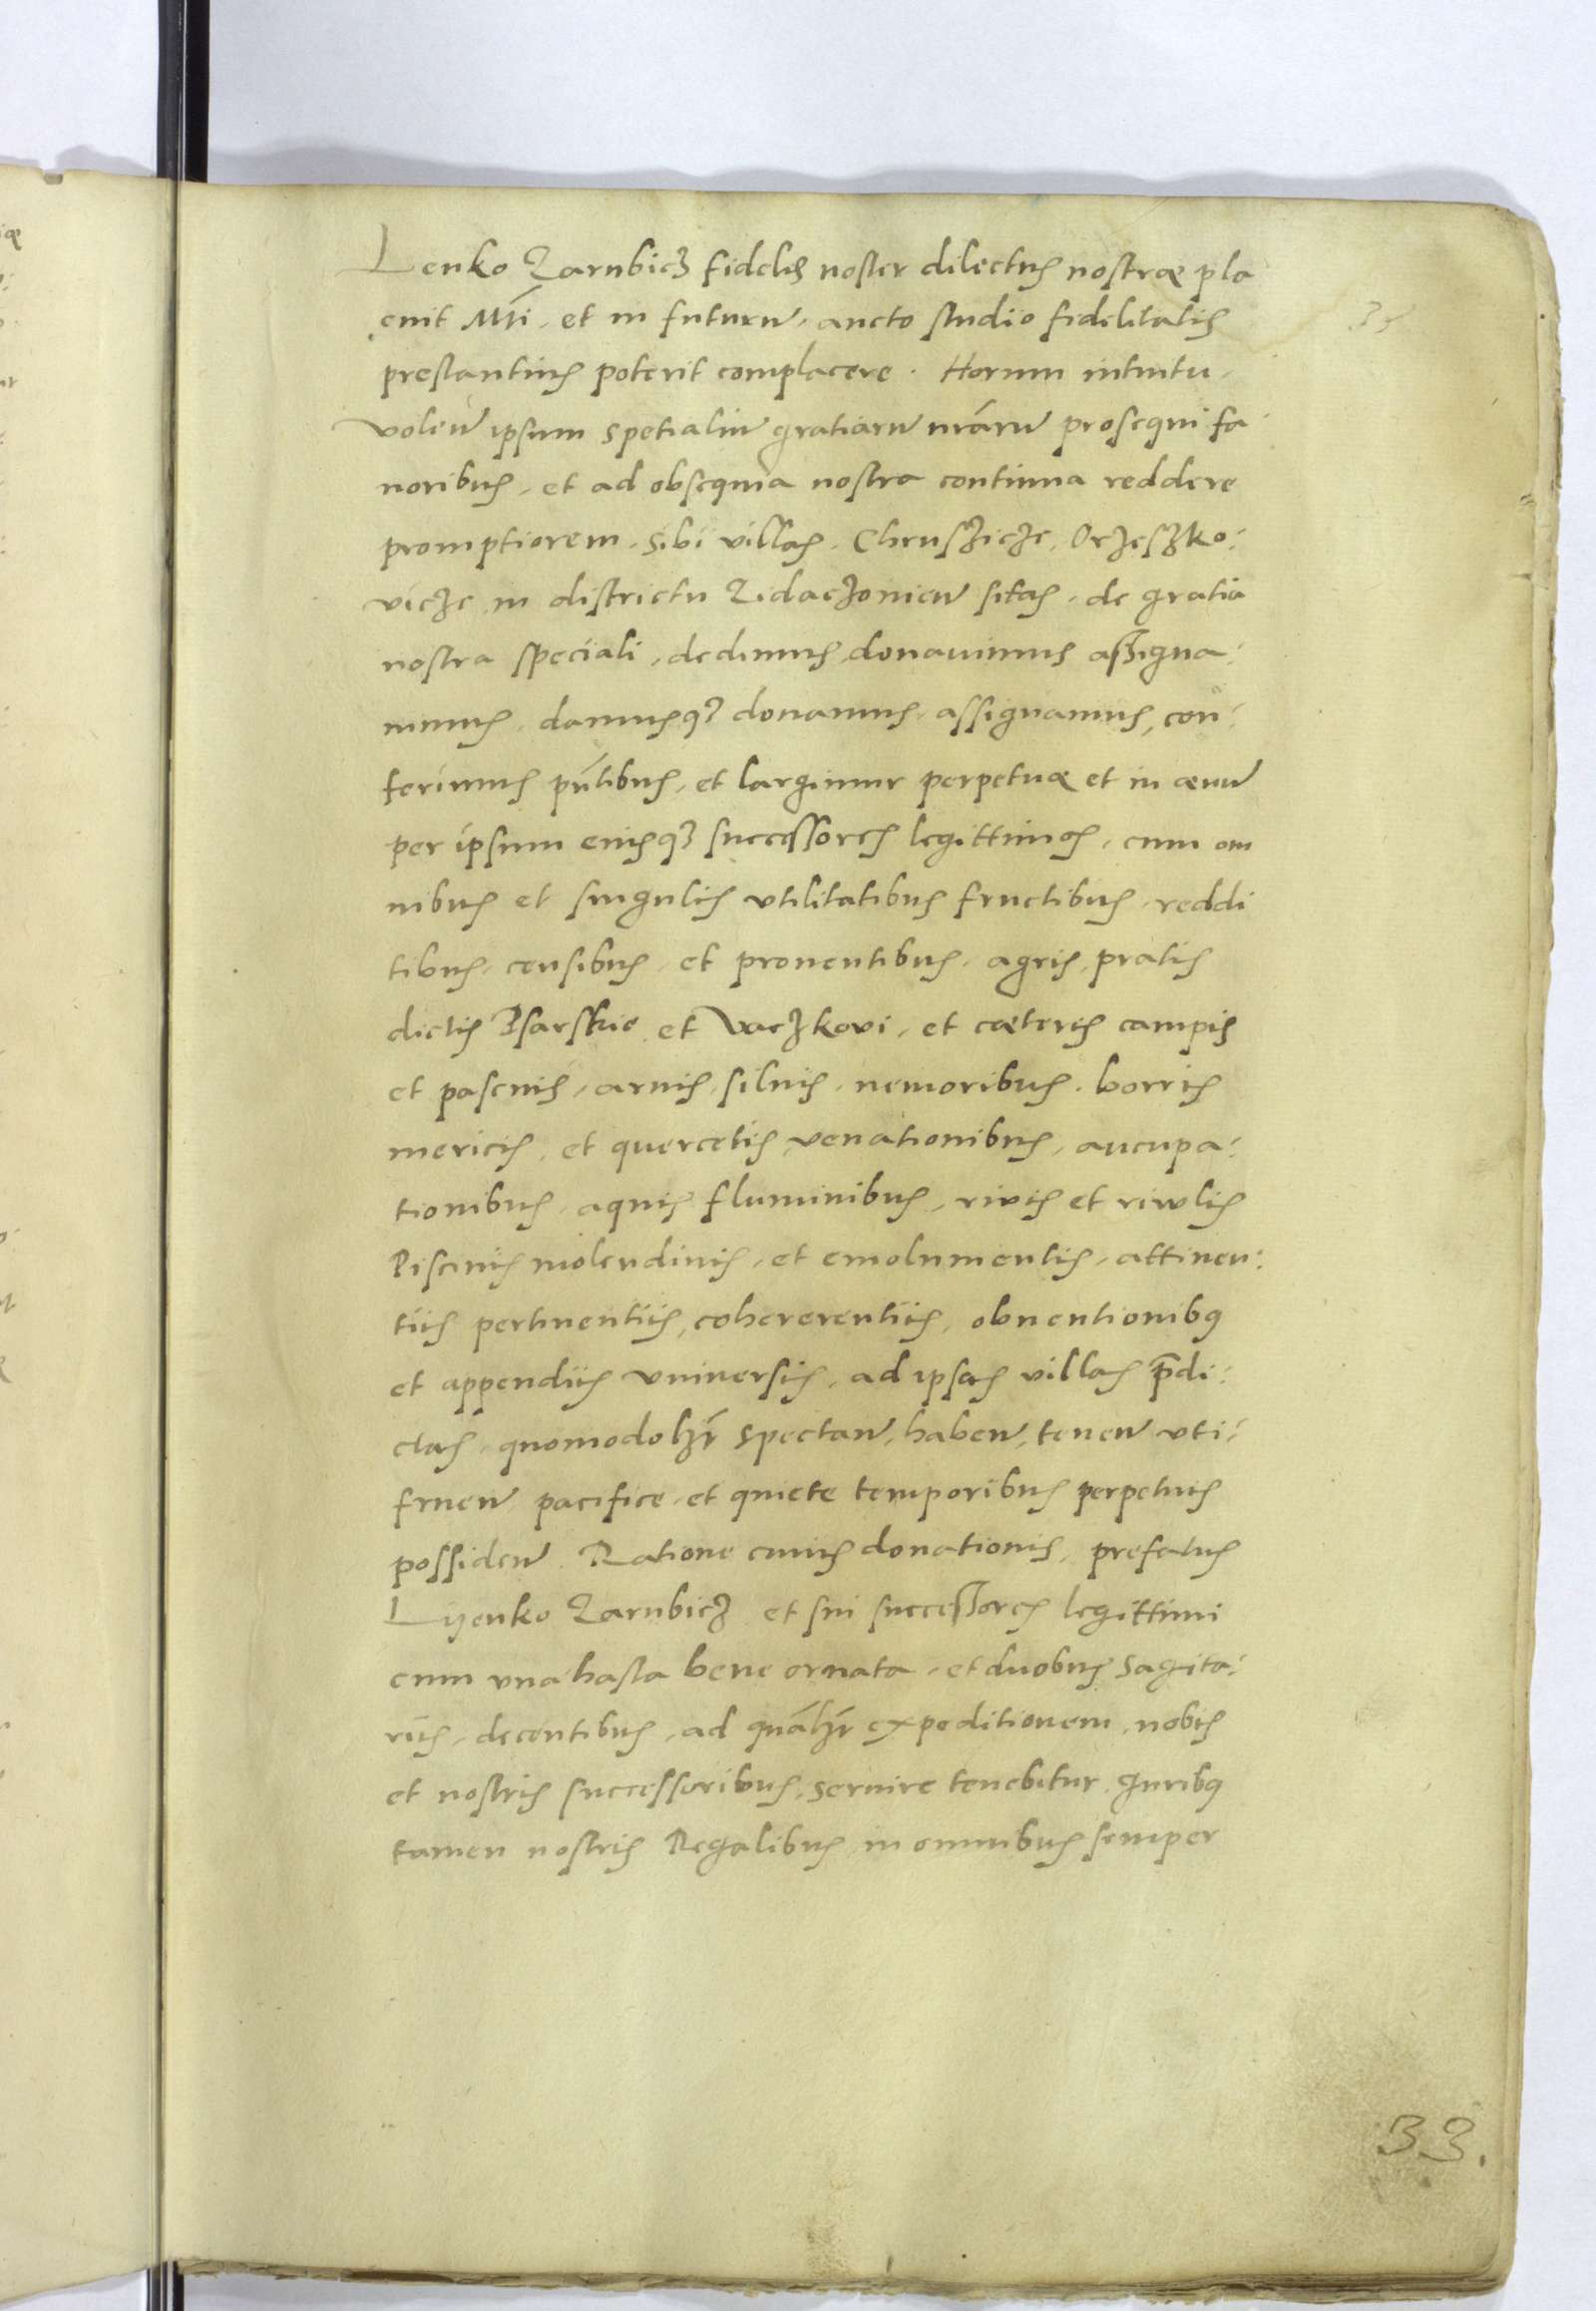 Lenko Zarubicz fidelis noster dilectus nostræ pla
cuit Mti, et in futurū, aucto studio fidelitatis
prestantius poterit complacere. Horum intuitu,
volen̄ ipsum spetialiū gratiarū nr̄arū prosequi fa
uoribus, et ad obsequia nostra continua reddere
promptiorem, sibi villas, Chruszicze, Orzeszko:
vicze in districtu Zidaczonien̄ sitas, de gratia
nostra speciali, dedimus, donauimus assigna:
uimus, damusq3 donamus, assignamus, con:
ferimus pn̄tibus, et largimur perpetuæ et in æuū
per ipsum eiusq3 successores legittimos, cum om
nibus et singulis vtilitatibus fructibus, reddi
tibus, censibus, et prouentibus, agris, pratis
dictis Psarskie et Vaczkovi, et cæteris campis
et pascuis, aruis, siluis, nemoribus, borris
mericis, et quercetis, venationibus, aucupa:
tionibus, aquis fluminibus, rivis et riwlis
Piscinis molendinis, et emolumentis, attinen:
tiis pertinentiis, cohererentiis, obuentionibq
et appendiis vniuersis, ad ipsas villas p̄di:
ctas, quomodolzt spectan̄, haben̄, tenen̄ vti:
fruen̄ pacifice, et quiete temporibus perpetuis
possiden̄. Ratione cuius donationis, prefatus
Lyenko Zarubicz et sui successores legittimi
cum vna hasta bene ornata, et duobus sagita:
riis, decentibus, ad quālzt expeditionem, nobis
et nostris successoribus, seruire tenebitur, Juribq
tamen nostris Regalibus in omnibus semper
33.